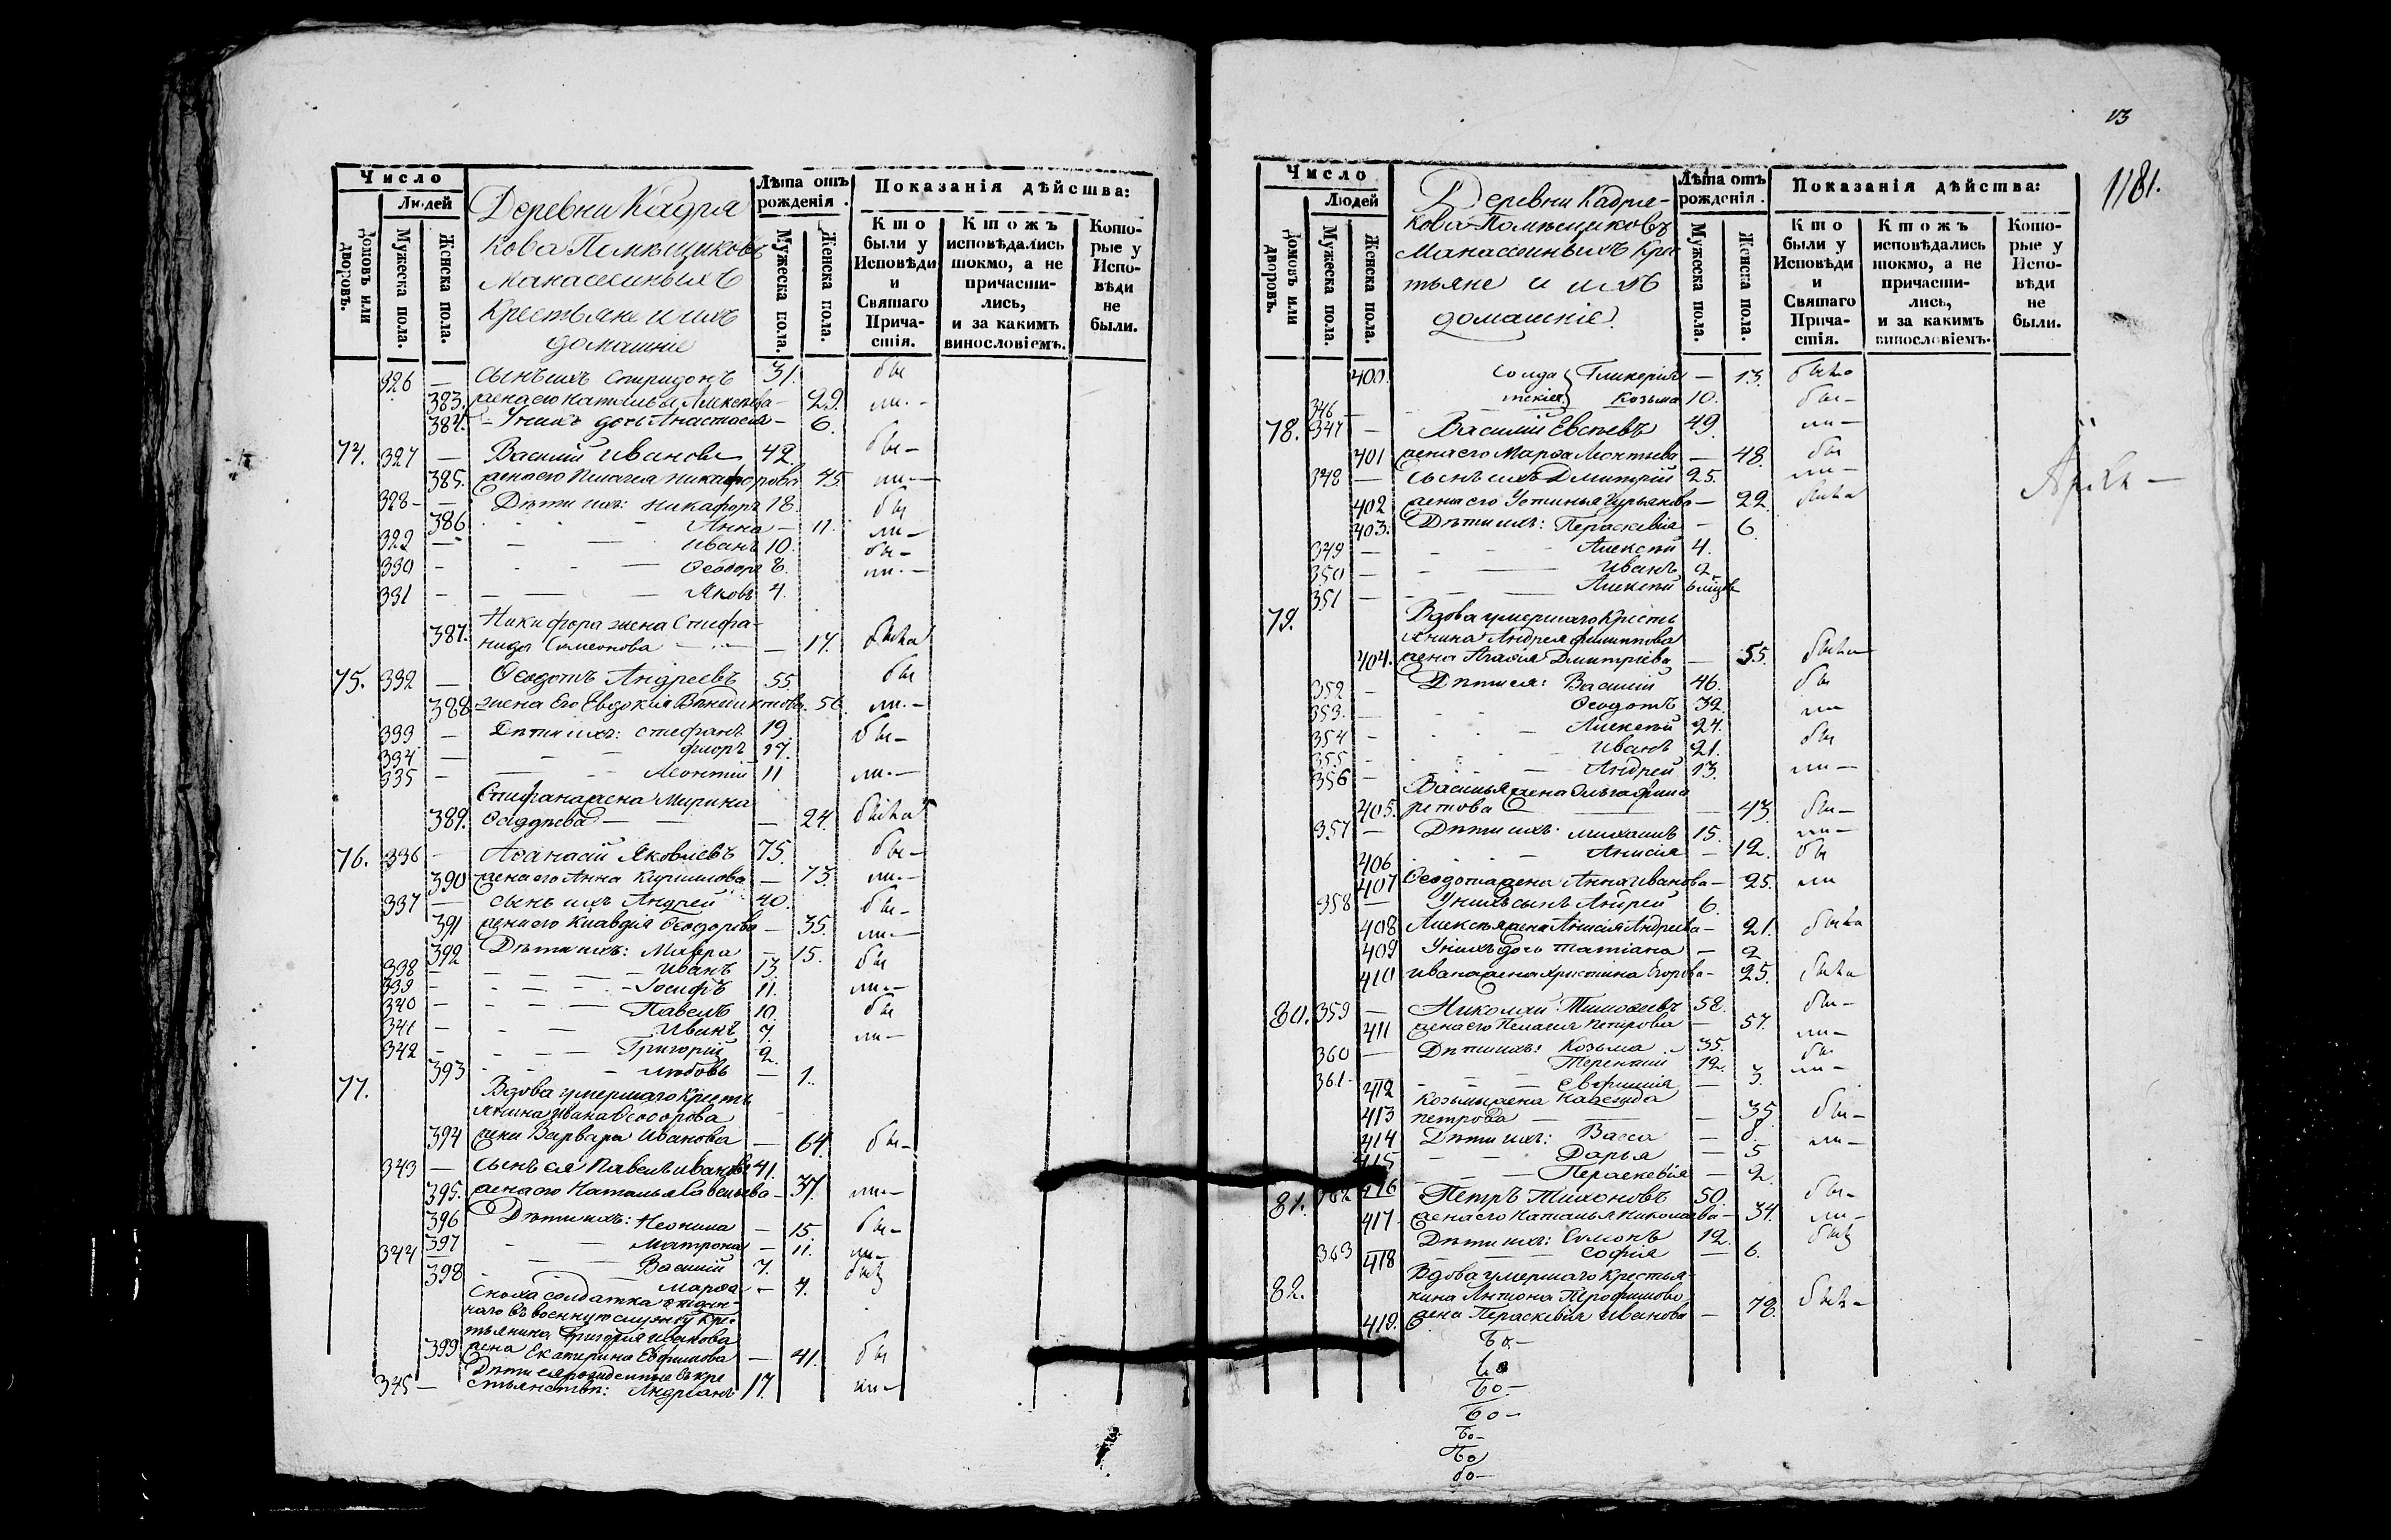 Число
Людей
Домовъ или дворовъ.
Мужеска пола.
Женска пола.
Деревни Кадря
кова Помѣщиковъ
Манасеиныхъ
Крестьяне и ихъ
домашніе
Лѣта отъ рожденія.
Мужеска пола.
Женска пола.
Показанія дѣйства:
Кто были у Исповѣди и Святаго Причастія.
Ктожъ исповѣдались токмо, а не причастились, и за какимъ винословіемъ.
Которые у Исповѣди не были.
326 — сынъ ихъ Спиридонъ 31. бы
383. жена его Наталья Алексѣева — 29. ли —
384. У нихъ дочь Анастасія — 6.
74. 327 — Василій Ивановъ 42. бы —
385. жена его Пелагея Никифорова 45. ли —
328 — Дѣти ихъ: Никифоръ 18. бы
386 Анна — 11. ли —
329 — Иванъ 10. бы —
330 — Ѳеодоръ 8. ли —
331 — Яковъ 4.
Никифора жена Стефа-
387. нида Симеонова — 17. была
75. 332 — Ѳеодотъ Андреевъ 55. бы
388. жена его Евдокія 56. ли —
333 — Дѣти ихъ: Стефанъ 19. бы —
334 — Флоръ 17.
335 — Леонтій 11 ли —
Стефана жена Ирина
389. Ѳаддѣева — 24. была
76. 336 — Аѳанасій Яковлевъ 75. бы —
390 жена его Анна Кирилова — 73. ли —
337 — сынъ ихъ Андрей 40. бы —
391 жена его Клавдія Ѳеодорова — 35. ли —
392 Дѣти ихъ: Мавра — 15. бы
338 — Иванъ 13.
339 — Іосифъ 11. ли —
340 — Павелъ 10. бы
341 — Иванъ 7. ли —
342 — Григорій 2.
393 Любовь — 1.
77. Вдова умершаго Кресть
янина Ивана Ѳеодорова
394 жена Варвара Иванова — 64. бы —
343 — сынъ ея Павелъ Ивановъ 41.
395. жена его Наталья Савельева — 37. ли —
396 Дѣти ихъ: Неонила — 15. бы —
397 Матрона — 11. ли —
344 — Василій 7. былъ
398 Марѳа — 4.
Сноха солдатка отдан-
наго въ военную службу кре-
стьянина Григорія Иванова
399 жена Екатерина Евфимова — 41. бы
Дѣти ея рожденные въ кре
345 — стьянствѣ: Андреанъ 17. ли —
13
1181.
Число
Людей
Домовъ или дворовъ.
Мужеска пола.
Женска пола.
Деревни Кадря-
кова Помѣщиковъ
Манасеиныхъ Кре
стьяне и ихъ
домашніе.
Лѣта отъ рожденія.
Мужеска пола.
Женска пола.
Показанія дѣйства:
Кто были у Исповѣди и Святаго Причастія.
Ктожъ исповѣдались токмо, а не причастились, и за какимъ винословіемъ.
Которые у Исповѣди не были.
400. Солда Гликерія — 13. была
346 — тскіе Козьма 10. бы —
78. 347 — Василій Евсѣевъ 49. ли —
401 жена его Марѳа Леонтьева — 48. бы
348 — сынъ ихъ Дмитрій 25. ли —
402 жена его Устинья Гурьянова — 22. была
403. Дѣти ихъ: Параскевія — 6.
349 — Алексѣй 4.
350 — Иванъ 2.
351 — Алексѣй
79. Вдова умершаго Кресть
янина Андрея Филиппова
404. жена Агаѳія Дмитріева — 55. была
352 — Дѣти ея: Василій 46. бы
353. — Ѳеодотъ 32. ли
354 — Алексѣй 24.
355 — Иванъ 21. бы
356 — Андрей 13. ли —
Василья жена Ольга Фила
405. ретова — 43. бы —
357 — Дѣти ихъ: Михаилъ 15. ли —
406 Анисія — 12. бы
407 Ѳеодота жена Анна Иванова — 25. ли
358 — У нихъ сынъ Андрей 6.
408 Алексѣя жена Анисія Андреева — 21. была
409 У нихъ дочь Татіана — 2
410 Ивана жена Христина Егорова — 25. была
80. 359 — Николай Тимоѳеевъ 58. бы —
411 жена его Пелагея Петрова — 57. ли —
360 — Дѣти ихъ: Козьма 35. бы
361 — Терентій 12. ли —
412 Евфимія — 3.
Козьмы жена Надежда
413 Петрова — 35. бы —
414 Дѣти ихъ: Васса — 8. ли —
415 Дарья — 5
416 Параскевія — 2.
81. 362 Петръ Тихоновъ 50. бы —
417 жена его Наталья Николаева — 34. ли —
363 Дѣти ихъ: Симонъ 12. былъ
418 Софія — 6.
82. Вдова умершаго Крестья-
нина Антона Трофимова
419. жена Параскевія Иванова — 78. была —